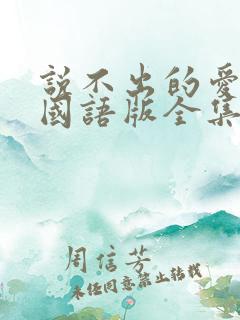 說不出的愛
國語版全集
周信芳
未经同意禁止转载